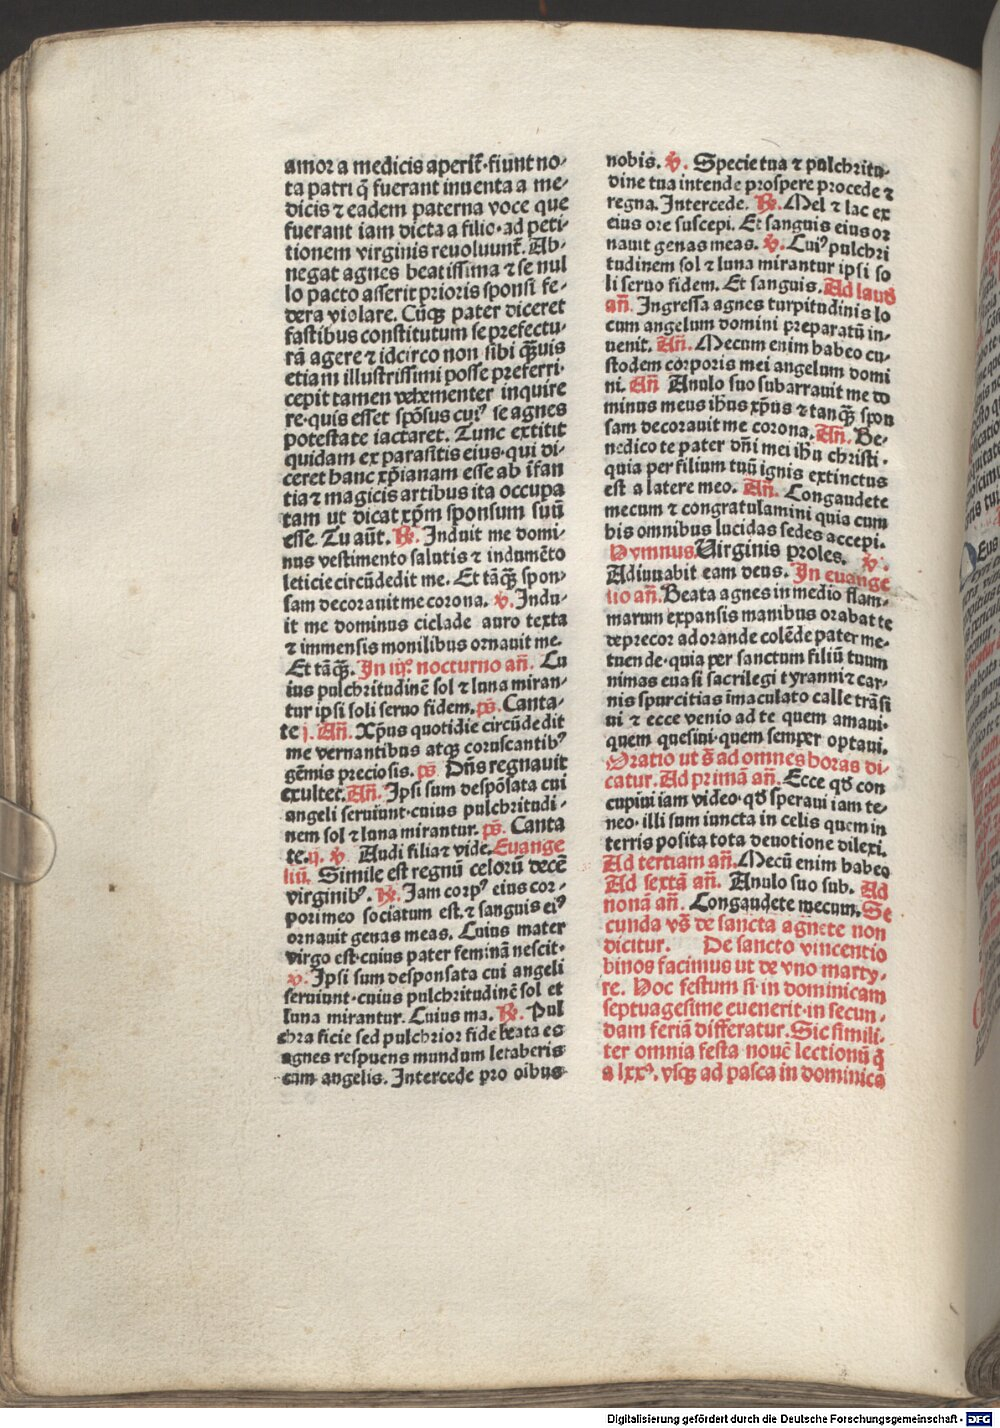 amor a medicis aperiť·fiunt no⸗
ta patri q̄ fuerant inuenta a me⸗
dicis ⁊ eadem paterna voce que
fuerant iam dicta a filio·ad peti⸗
tionem virginis reuoluunť. Ab⸗
negat agnes beatissima ⁊ se nul
lo pacto asserit prioris sponsi fe⸗
dera violare. Cūqꝫ pater diceret
fastibus constitutum se prefectu⸗
rā agere ⁊ idcirco non sibi qꝫ̄uis
etiam illustrissimi posse preferri·
cepit tamen vehementer inquire
re·quis esset spōsus cuiꝰ se agnes
potestate iactaret. Tunc extitit
quidam ex parasitis eius·qui di⸗
ceret hanc xp̄ianam esse ab īfan
tia ⁊ magicis artibus ita occupa
tam ut dicat xp̄m sponsum suū
esse. Tu aūt. ℟. Induit me domi⸗
nus vestimento salutis ⁊ indumēto
leticie circūdedit me. Et tāqꝫ̄ spon⸗
sam decorauit me corona. ℣. Indu⸗
it me dominus ciclade auro texta
⁊ immensis monilibus ornauit me.
Et tāqꝫ̄. In iijº. nocturno añ. Cu
ius pulchritudinē sol ⁊ luna miran⸗
tur ipsi soli seruo fidem. ps̄. Canta⸗
te j. Añ. Xp̄us quotidie circūdedit
me vernantibus atqꝫ coruscantibꝰ
gēmis preciosis. ps̄. Dn̄s regnauit
exultet. Añ. Ipsi sum despōsata cui
angeli seruiunt·cuius pulchritudi⸗
nem sol ⁊ luna mirantur. ps̄. Canta
te. ij. ℣. Audi filia ⁊ vide. Euange
liū. Simile est regnū celorū decē
virginibꝰ. ℟. Iam corpꝰ eius cor⸗
pori meo sociatum est. ⁊ sanguis eiꝰ
ornauit genas meas. Cuius mater
virgo est·cuius pater feminā nescit·
℣. Ipsi sum desponsata cui angeli
seruiunt·cuius pulchritudinē sol et
luna mirantur. Cuius ma. ℟. Pul
chra ficie sed pulchrior fide beata es
agnes respuens mundum letaberis
cum angelis. Intercede pro oibus
nobis. ℣. Specie tua ⁊ pulchritu⸗
dine tua intende prospere procede ⁊
regna. Intercede. ℟. Mel ⁊ lac ex
eius ore suscepi. Et sanguis eius or
nauit genas meas. ℣. Cuiꝰ pulchri
tudinem sol ⁊ luna mirantur ipsi so
li seruo fidem. Et sanguis. Ad laud
añ. Ingressa agnes turpitudinis lo
cum angelum domini preparatū in⸗
uenit. Añ. Mecum enim habeo cu⸗
stodem corporis mei angelum domi
ni. Añ Anulo suo subarrauit me do
minus meus ihūs xp̄us ⁊ tanqꝫ̄ spon
sam decorauit me corona. Añ. Be⸗
nedico te pater dn̄i mei ihū christi·
quia per filium tuū ignis extinctus
est a latere meo. Añ. Congaudete
mecum ⁊ congratulamini quia cum
his omnibus lucidas sedes accepi.
Hymnus. Uirginis proles. ℣.
Adiuuabit eam deus. In euange
lio añ. Beata agnes in medio flam⸗
marum expansis manibus orabat te
deprecor adorande colēde pater me⸗
tuende·quia per sanctum filiū tuum
nimas euasi sacrilegi tyranni ⁊ car⸗
nis spurcitias īmaculato calle trāsi
ui ⁊ ecce venio ad te quem amaui·
quem quesiui·quem semper optaui.
Oratio ut s̄ ad omnes horas di⸗
catur. Ad primā añ. Ecce qd̄ con
cupiui iam video·qd̄ speraui iam te⸗
neo·illi sum iuncta in celis quem in
terris posita tota deuotione dilexi.
Ad tertiam añ. Mecū enim habeo
Ad sextā añ. Anulo suo sub. Ad
nonā añ. Congaudete mecum. Se
cunda vs̄ de sancta agnete non
dicitur. De sancto vincentio
hinos facimus ut de vno marty⸗
re. Hoc festum si in dominicam
septuagesime euenerit·in secun⸗
dam feriā differatur. Sic simili⸗
ter omnia festa nouē lectionū q̄
a lxxª. vsqꝫ ad pasca in dominica
Digitalisierung gefördert durch die Deutsche Forschungsgemeinschaft - DFG